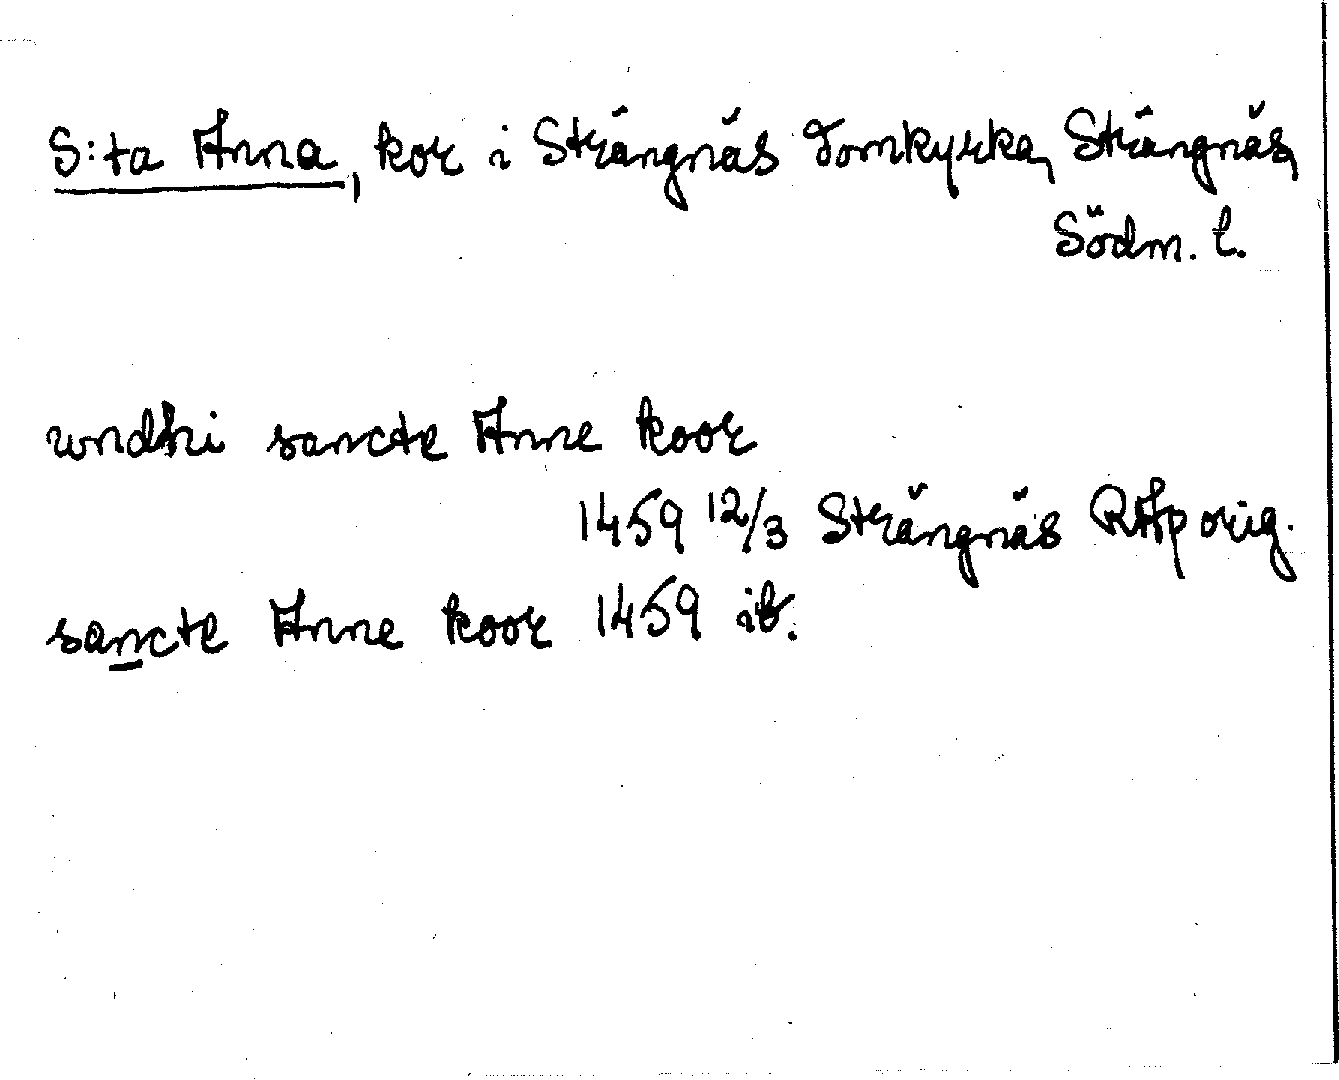 S:ta Anna, kor i Strängnäs domkyrka, Strängnäs,
Södm. l.
wndhi sancte Anne koor
1459 12/3 Strängnäs RAp orig.
sancte Anne koor 1459 ib.